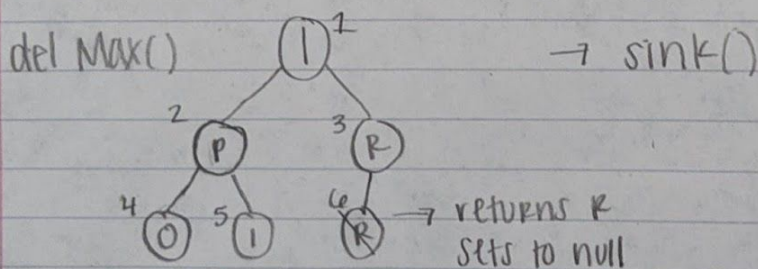 del Max() I 1 → sink()
2 P 3 R
4 O 5 I 6 R → returns R
sets to null